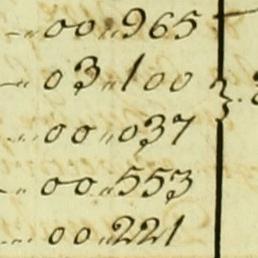 00„965
03„100
00„037
00„553
00„221